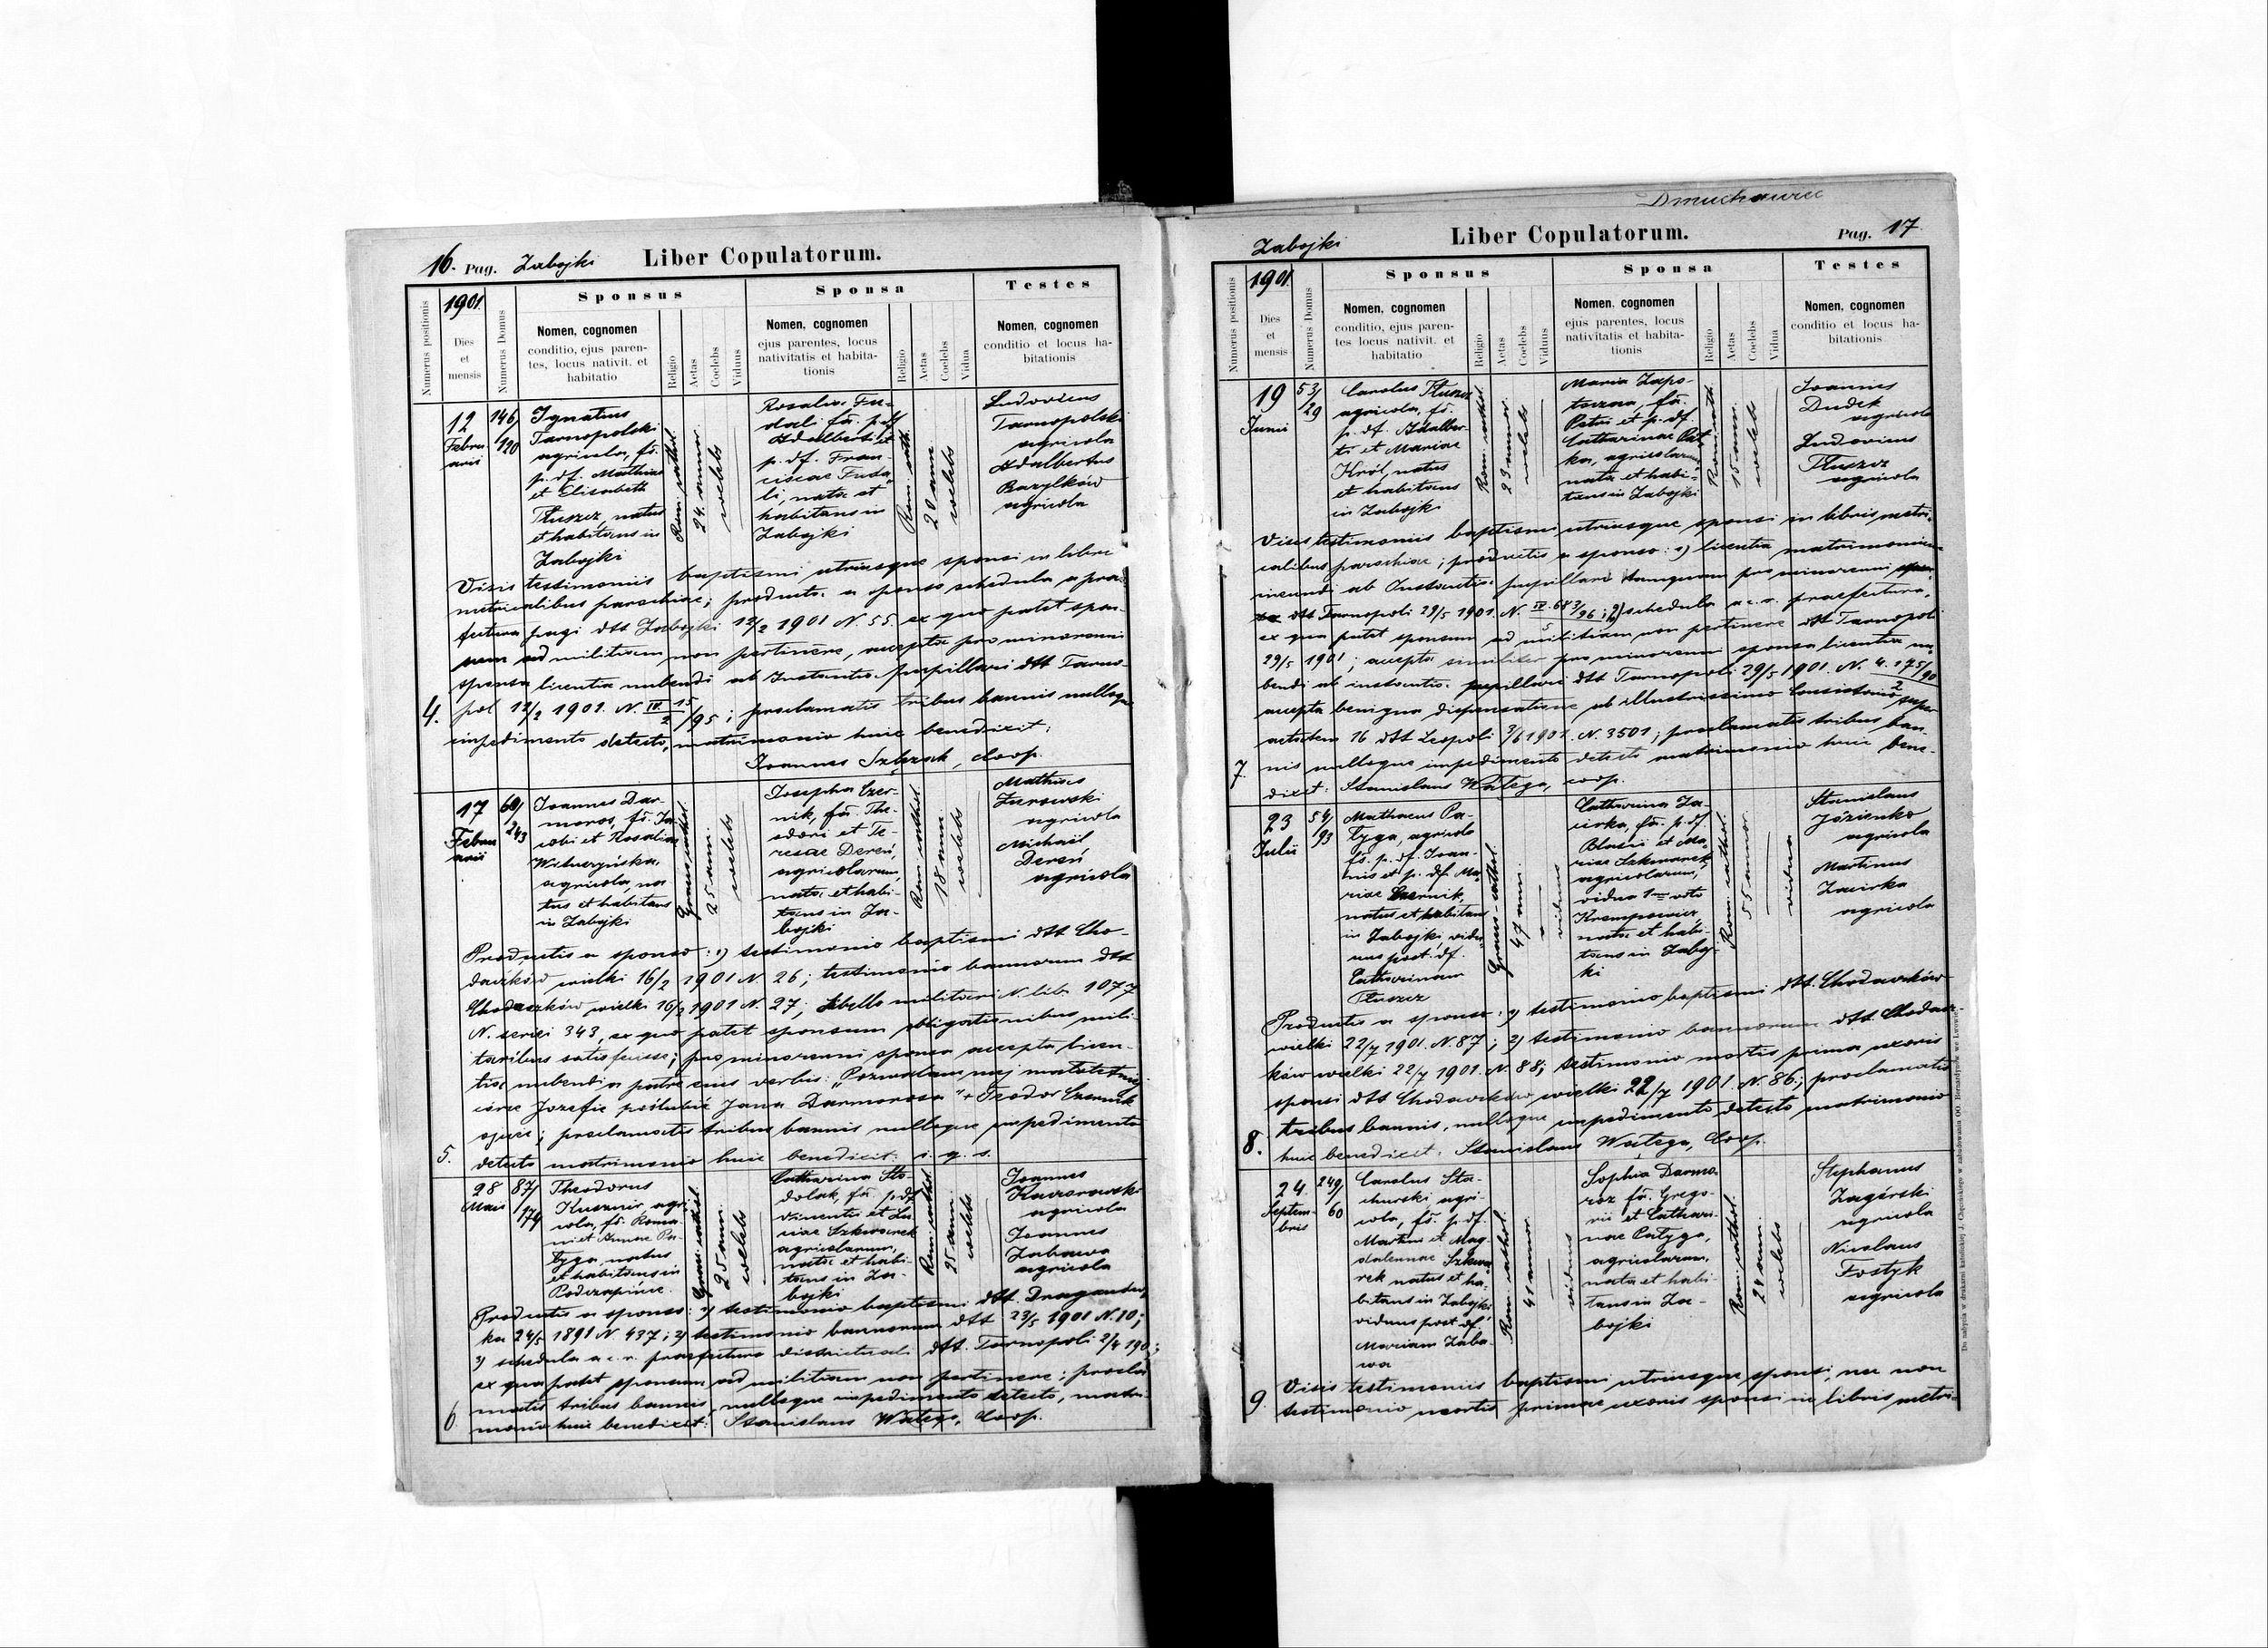 16. Pag. Zabojki Liber Copulatorum.
Numerus positionis
1901.
Dies
et
mensis
Numerus Domus
Sponsus
Nomen, cognomen
conditio, ejus paren-
tes, locus nativit. et
habitatio
Religio
Aetas
Coelebs
Viduus
Sponsa
Nomen, cognomen
ejus parentes, locus
nativitatis et habita-
tionis
Religio
Aetas
Coelebs
Vidua
Testes
Nomen, cognomen
conditio et locus ha-
bitationis
12
Febru
arii
146/
120
Ignatius
Tarnopolski
agricola, fs.
p. df. Mathiae
et Elisabeth
Tłuszcz, natus
et habitans in
Zabojki
Rom. cathol.
24. annor.
coelebs
Rosalia Fu-
dali fa. p. df
Adalberti et
p. df. Fran-
ciscae Fuda
li, nata et
habitans in
Zabojki
Rom. cath.
20 ann.
coelebs
Ludovicus
Tarnopolski
agricola
Adalbertus
Bazylków
agricola
Visis testimoniis baptismi utriusque sponsi in libris
metricalibus parochiae; producta a sponso schedula a prae-
fectura pagi dtt Zabojki 12/2 1901 N. 55. ex quo patet spon-
sum ad militiam non pertinere, accepta pro minorenni
sponsa licentia nubendi ab Instantia pupillari dtt Tarno-
pol 12/2 1901. N. IV 15/2/95; proclamatis tribus bannis nulloque
impedimento detecto, matrimonio huic benedixit:
4.
17
Februarii
69/
243
Joannes Dar-
moros, fs. Ja
cobi et Rosaliae
agricola, na
tus et habitans
in Zabojki
Graeco cathol.
25 ann.
coelebs
Josepha Czer-
nik, fa. The-
odori et Te-
resae Dereń,
agricolarum,
nata et habi-
tans in Za-
bojki
Rom. cathol.
18 ann.
coelebs
Mathias
Żurowski
agricola
Michaël
Dereń
agricola
Productis a sponso: 1) testimonio baptismi dtt Cho-
daczków wielki 16/2 1901 N. 26; testimonio bannorum dtt
Chodaczków wielki 16/2 1901 N. 27; libello militari N. lib. 1077
N. seriei 343, ex quo patet sponsum obligationibus mili-
taribus satisfecisse; pro minorenni sponsa accepta licen-
tia nubendi a patre eius verbis: „Pozwalam mej małoletniej
córce Józefie poślubić Jana Darmorosa" + Teodor Czernik
ojciec; proclamatis tribus bannis nulloque impedimento
detecto matrimonio huic benedixit: i. q. s.
5.
28
Maii
87/
174
Theodorus
Kusznir, agri
cola, fs. Roma
ni et Annae Pa-
tyga, natus
et habitans in
Poczapińce
Graeco cathol.
25 ann.
coelebs
Catharina Sto-
dolak, fa. p. df
Vincentii et Lu
ciae Szkwarek
agricolarum,
nata et habi-
tans in Za-
bojki
Rom. cathol.
25 ann.
coelebs
Joannes
Kaczorowski
agricola
Joannes
Zabawa
agricola
Productis a sponso: 1) testimonio baptismi dtt. Draganów
ka 24/5 1891 N. 437; 2) testimonio bannorum dtt 23/5 1901 N. 10;
3) schedula a c. r. praefectura districtuali dtt. Tarnopoli 2/4 1901;
ex qua patet sponsum ad militiam non pertinere; procla
matis tribus bannis, nulloque impedimento detecto, matri-
monio huic benedixit: Stanislaus Wałęga, Coop.
6
Dmuchawiec
Zabojki Liber Copulatorum. Pag. 17.
Numerus positionis
1901.
Dies
et
mensis
Numerus Domus
Sponsus
Nomen, cognomen
conditio, ejus paren-
tes locus nativit. et
habitatio
Religio
Aetas
Coelebs
Viduus
Sponsa
Nomen, cognomen
ejus parentes, locus
nativitatis et habita-
tionis
Religio
Aetas
Coelebs
Vidua
Testes
Nomen, cognomen
conditio et locus ha-
bitationis
19
Junii
53/
29
Carolus Tłuszcz
agricola, fs.
p. df. Adalber-
ti et Mariae
Król, natus
et habitans
in Zabojki
Rom. cathol.
23 annor.
coelebs
Maria Zapo-
toczna, fa.
Petri et p. df.
Catharinae Pat
ka, agricolarum,
nata et habi-
tans in Zabojki
Rom. cath.
15 ann.
coelebs
Joannes
Dudek
agricola
Ludovicus
Tłuszcz
agricola
Visis testimoniis baptismi utriusque sponsi in libris metri-
calibus parochiae; productis a sponso: 1) licentia matrimonium
ineundi ab Instantia pupillari tamquam pro minorenni
dtt Tarnopoli 29/5 1901. N. IV. 683/5/96; 2) schedula a c. r. praefectura,
ex qua patet sponsum ad militiam non pertinere dtt Tarnopoli
29/5 1901; accepta similiter pro minorenni sponsa licentia nu
bendi ab instantia pupillari dtt Tarnopoli 29/5 1901. N. 4. 175/2/90
accepta benigna dispensatione ab illustrissimo Consistorio super
aetatem 16 dtt Leopoli 3/6 1901. N. 3501; proclamatis tribus ban-
nis nulloque impedimento detecto matrimonio huic bene-
dixit: Stanislaus Wałęga, coop.
7.
23
Julii
54/
93
Mathaeus Pa-
tyga, agricola
fs. p. df. Joan-
nis et p. df. Ma-
riae Czernik,
natus et habitans
in Zabojki, vidu-
us post. df.
Catharinam
Tłuszcz
Graeco-cathol.
47 ann.
viduus
Catharina Za-
cirka, fa. p. df
Blasii et Ma-
riae Szkwarek
agricolarum,
vidua 1mo voto
nata et habi-
tans in Zaboj-
ki
Rom. cathol.
55 annor.
vidua
Stanislaus
Józienko
agricola
Martinus
Zacirka
agricola
Productis a sponso: 1) testimonio baptismi dtt. Chodaczków
wielki 22/7 1901. N. 87; 2) testimonio bannorum dtt. Chodacz-
ków wielki 22/7 1901. N. 88; testimonio mortis prima uxoris
sponsi dtt Chodaczków wielki 22/7 1901 N. 86; proclamatis
tribus bannis, nulloque impedimento detecto matrimonio
huic benedixit. Stanislaus Wałęga, Coop.
8.
24.
Septem-
bris
249/
60
Carolus Sta-
churski agri-
cola, fs. p. df.
Martini et Mag-
dalenae Szkwa
rek natus et ha-
bitans in Zabojki,
viduus post df.
Mariam Zaba-
wa
Rom. cathol.
41 annor.
viduus
Sophia Darmo
roz fa. Grego-
rii et Cathari-
nae Patyga,
agricolarum,
nata et habi-
tans in Za-
bojki
Rom. cathol.
28 ann.
coelebs
Stephanus
Zagórski
agricola
Nicolaus
Fostyk
agricola
Visis testimoniis baptismi utriusque sponsi, nec non
testimonio mortis primae uxoris sponsi in libris metri-
9.